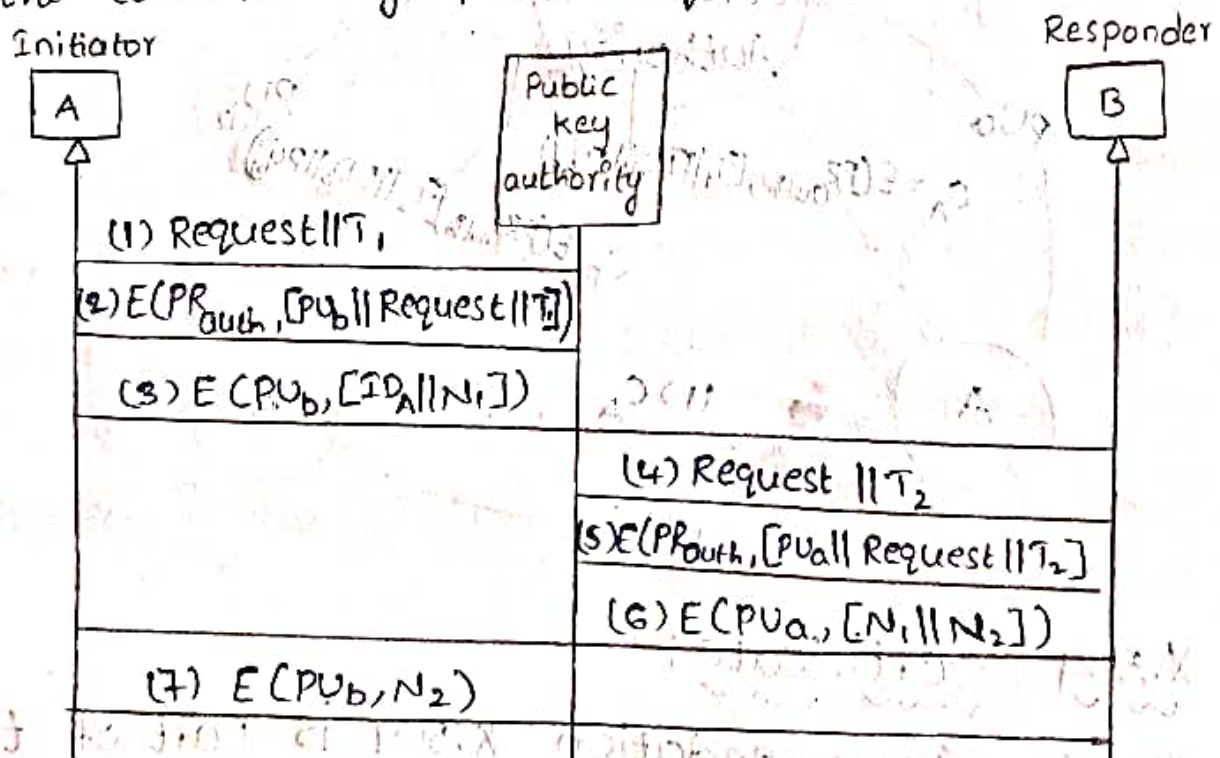 Initiator
Responder
A
Public
key
authority
B
(1) Request||T₁
(2) E(PR_auth, [PU_b || Request||T₁])
(3) E(PU_b, [ID_A||N₁])
(4) Request ||T₂
(5) E(PR_auth, [PU_a|| Request ||T₂]
(6) E(PU_a, [N₁||N₂])
(7) E(PU_b, N₂)